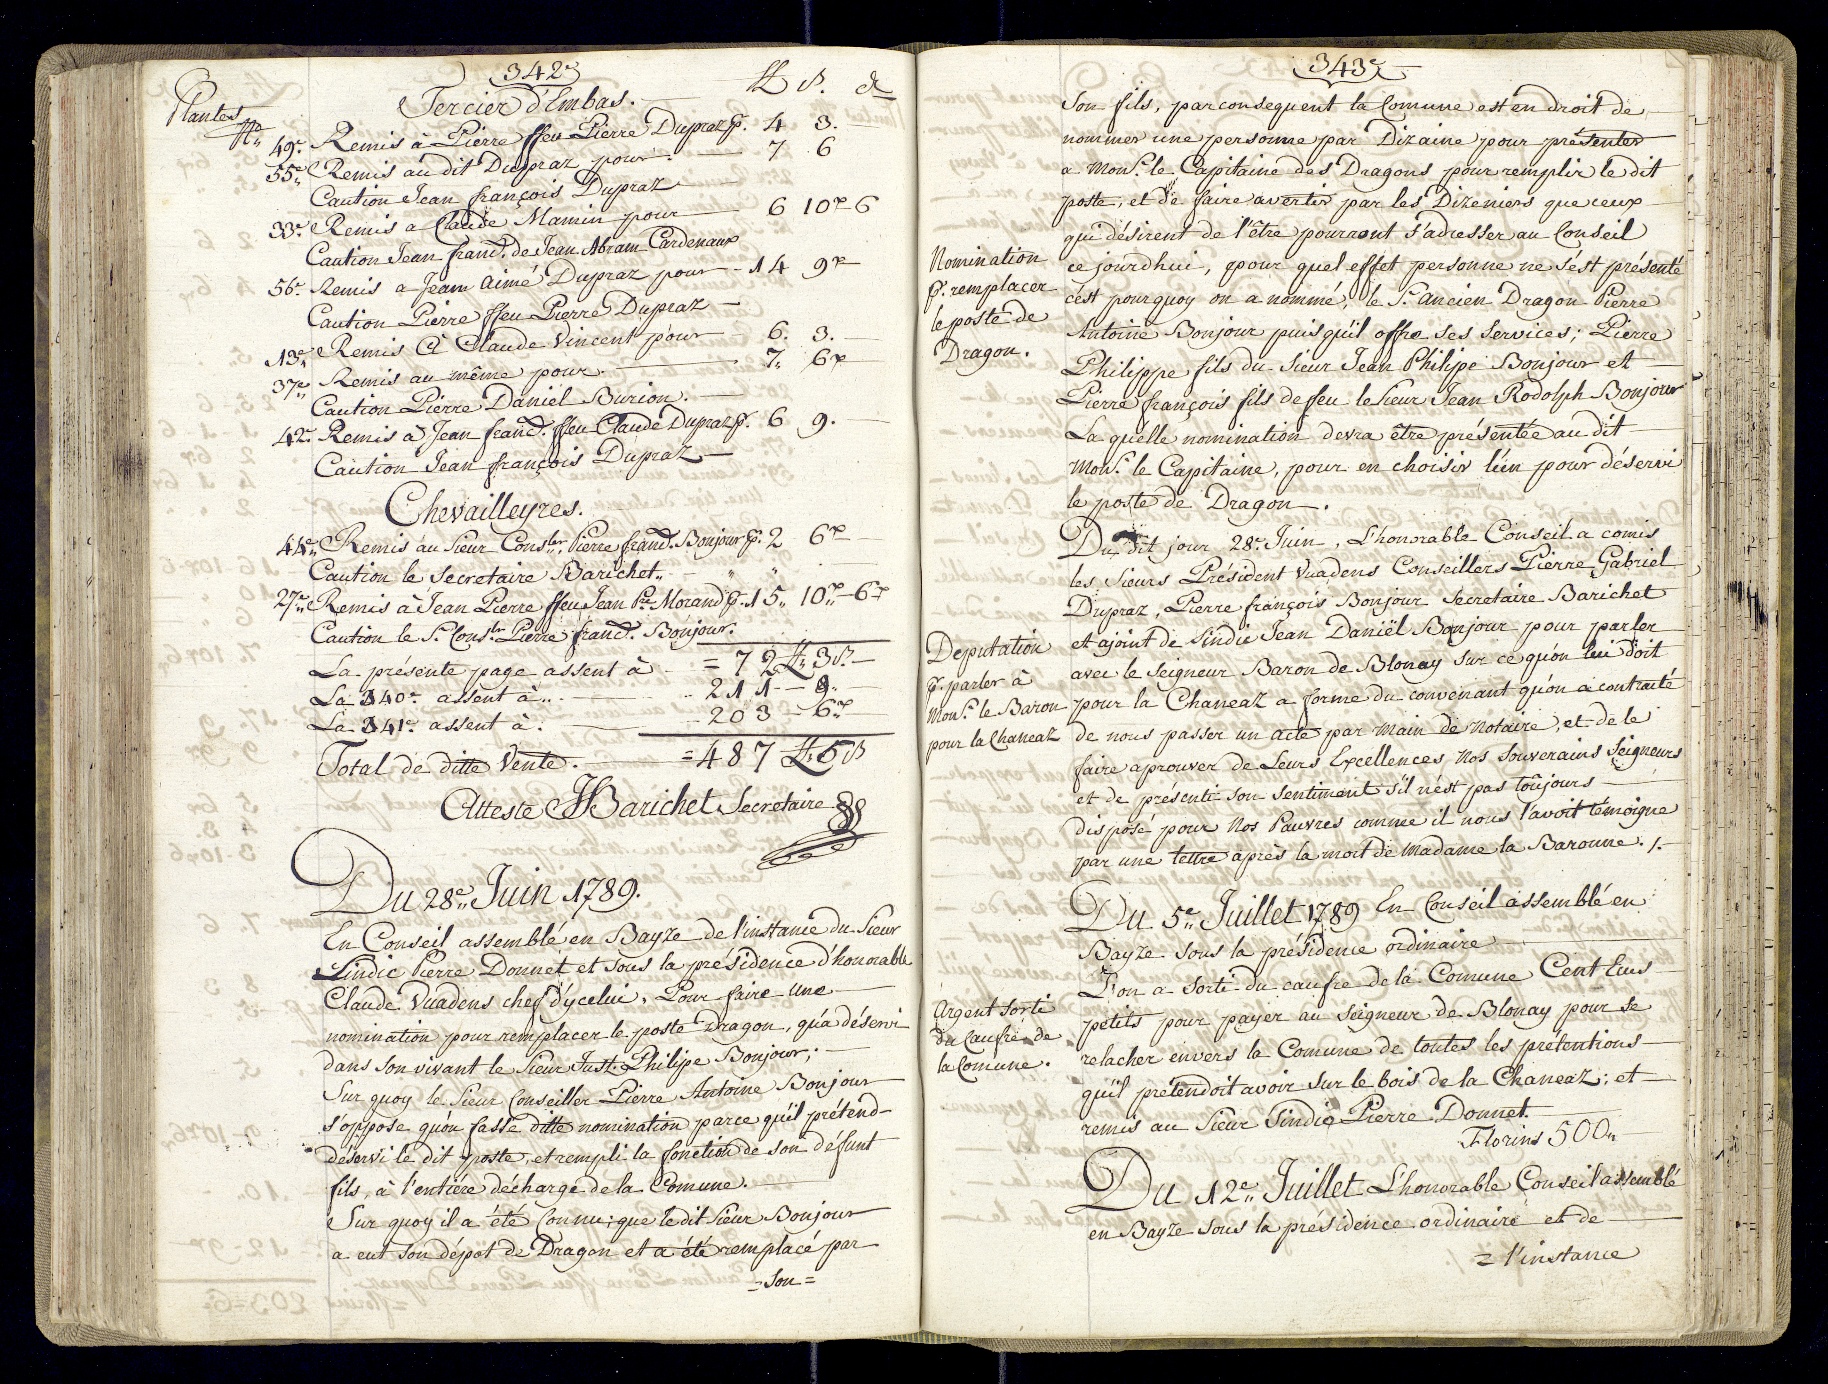 342e
Plantes
Tercier d'Embas. ₶ ß. &
No. 49e. Remis à Pierre ffeu Pierre Dupraz p. 4 3.
55e. Remis au dit Dupraz pour. 7 6
Caution Jean françois Dupraz
33e. Remis a Claude Mamin pour 6 10 6
Caution Jean franc̃. de Jean Abram Cardenaux
56e. Remis a Jean Aimé Dupraz pour 14 9
Caution Pierre ffeu Pierre Dupraz
13e. Remis à Claude Vincent pour 6. 3.
37e. Remis au même pour. 7. 6
Caution Pierre Daniel Burion.
42e. Remis à Jean franc̃. ffeu Claude Dupraz p. 6 9.
Caution Jean françois Dupraz
Chevailleyres.
44e. Remis au Sieur Conseler. Pierre franc̃. Bonjour p. 2 6
Caution le Secretaire Barichet. " "
27e. Remis à Jean Pierre ffeu Jean Pre. Morand p. 15. 10. 6
Caution le Sr. Conslr. Pierre franc̃. Bonjour.
La présente page assent à = 72 ₶ 3 ß.
La 340e. assent à .. 211 - 8.
La 341e. assent à . 203 - 6.
Total de ditte Vente. = 487 ₶ 5 ß
Atteste JJBarichet Secretaire
Du 28e. Juin 1789.
En Conseil assemblé en Bayze de l'instance du Sieur
Sindic Pierre Donnet et sous la présidence d'honorable
Claude Vuadens chef d'ycelui, Pour faire une
nomination pour remplacer le poste Dragon, qu'a déservi
dans son vivant le Sieur Just. Philipe Bonjour;
Sur quoy le Sieur Conseiller Pierre Antoine Bonjour
s'oppose qu'on fasse ditte nomination parce qu'il prétend
déservi le dit poste, et rempli la fonction de son défunt
fils, à l'entiére décharge de la Comune.
Sur quoy il a été Connu; que le dit Sieur Bonjour
a eut son dépot de Dragon et a été remplacé par
= Son =
343e
Son fils, par consequent la Comune est en droit de
nommer une personne par Dizaine pour présenter
a Monsr. le Capitaine des Dragons pour remplir le dit
poste, et de faire avertir par les Dizeniers que ceux
qui désirent de l'être pourront s'adresser au Conseil
Nomination
p. remplacer
le poste de
Dragon.
ce jourdhui, pour quel effet personne ne s'ést présenté
c'ést pourquoy on a nommé, le Sr. ancien Dragon Pierre
Antoine Bonjour puis qu'il offre ses services; Pierre
Philippe fils du Sieur Jean Philipe Bonjour et
Pierre françois fils de feu le Sieur Jean Rodolph Bonjour
La quelle nomination devra être présentée au dit
Monsr. le Capitaine, pour en choisir l'ün pour déservi
le poste de Dragon.
Du dit jour 28e. Juin, L'honorable Conseil a comis
les Sieurs Président Vuadens Conseillers Pierre Gabriel
Dupraz, Pierre françois Bonjour Secretaire Barichet
et ajoint de Sindic Jean Daniël Bonjour pour parler
Deputation
p. parler à
Monsr. le Baron
pour la Chaneaz
avec le Seigneur Baron de Blonay sur ce qu'on lui doit
pour la Chaneaz a forme du convenant qu'on a contraité
de nous passer un acte par main de Notaire, et de le
faire aprouver de Leurs Excellences Nos Souverains Seigneurs
et de présenti son sentiment s'il n'ést pas toûjours
disposé pour Nos Pauvres comme il nous l'avoit témoigne
par une lettre après la mort de Madame la Baronne./.
Du 5e. Juillet 1789 En Conseil assemblé en
Bayze sous la présidence ordinaire
L'on a sorti du caufre de la Comune Cent Ecus
Argent sorti
du Caufre de
la Comune.
petits pour payer au Seigneur de Blonay pour se
relacher envers la Comune de toutes les pretentions
qu'il prétendoit avoir sur le bois de la Chaneaz; et
remis au Sieur Sindic Pierre Donnet.
Florins 500.
Du 12e. Juillet L'honorable Conseil assemblé
en Bayze sous la présidence ordinaire et de
= l'instance